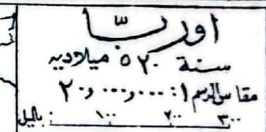 اوربا
سنة ٥٢٠ ميلاديه
مقاس الرسم ١ : ٢٠٠٠٠٠٠٠
٣٠٠ ٢٠٠ ١٠٠ بالميل